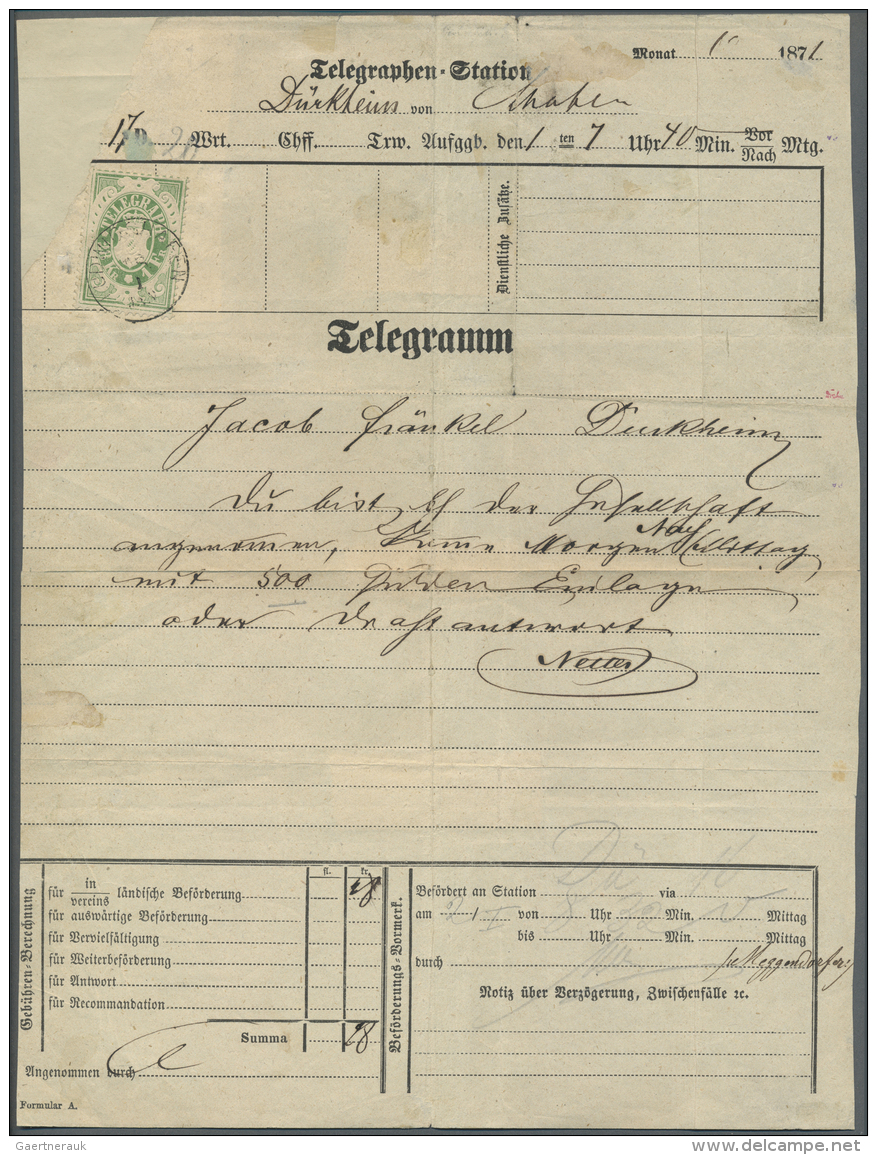 Monat 1871
Telegraphen-Station
Dürkheim von
17 20 Wrt. Chff. Trw. Aufggb. den 1 ten 7 Uhr 40 Min. Vor/Nach Mtg.
TELEGRAPH
Dienstliche Zusätze.
Telegramm
Jacob Fränkel Durkheim
Du bist in der Gesellschaft
angenommen, komme Morgen Nach Mittag
mit 500 Gulden Einlage
oder Drahtantwort
Netter
Gebühren-Berechnung
fl. kr.
für in/vereins ländische Beförderung 28
für auswärtige Beförderung
für Vervielfältigung
für Weiterbeförderung
für Antwort
für Recommandation
Summa 28
Angenommen durch
Formular A.
Beförderungs-Vormerk.
Befördert an Station Dü via
am 2/I von 8 Uhr Min. V Mittag
bis Uhr Min. Mittag
durch Meggendorfer
Notiz über Verzögerung, Zwischenfälle ꝛc.
Gaertnerauk
delcampe.net